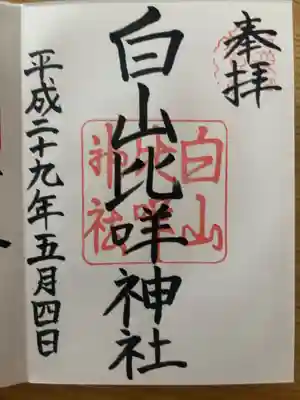 奉拝
白山比咩神社
平成二十九年五月四日
白山
比咩
神社